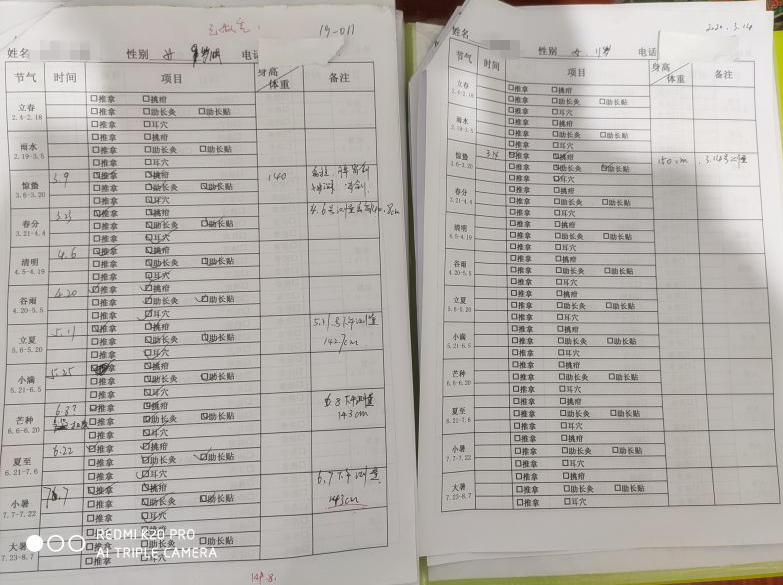 19-011
姓名 性别 电话
节气 时间 项目 身高 体重 备注
立春
2.4-2.18
□推拿 □挑疳
□推拿 □助长灸 □助长贴
□推拿 □耳穴
雨水
2.19-3.5
□推拿 □挑疳
□推拿 □助长灸 □助长贴
□推拿 □耳穴
惊蛰
3.6-3.20
3.9
□推拿 □挑疳
□推拿 □助长灸 □助长贴
□推拿 □耳穴
140
春分
3.21-4.4
3.23
□推拿 □挑疳
□推拿 □助长灸 □助长贴
□推拿 □耳穴
清明
4.5-4.19
4.6
□推拿 □挑疳
□推拿 □助长灸 □助长贴
□推拿 □耳穴
谷雨
4.20-5.5
4.20
□推拿 □挑疳
□推拿 □助长灸 □助长贴
□推拿 □耳穴
立夏
5.6-5.20
5.11
□推拿 □挑疳
□推拿 □助长灸 □助长贴
□推拿 □耳穴
小满
5.21-6.5
5.25
□推拿 □挑疳
□推拿 □助长灸 □助长贴
□推拿 □耳穴
芒种
6.6-6.20
□推拿 □挑疳
□推拿 □助长灸 □助长贴
□推拿 □耳穴
143cm
夏至
5.21-7.6
6.22
□推拿 □挑疳
□推拿 □助长灸 □助长贴
□推拿 □耳穴
小暑
7.7-7.22
□推拿 □挑疳
□推拿 □助长灸 □助长贴
□推拿 □耳穴
143cm
大暑
7.23-8.7
□推拿 □挑疳
□推拿 □助长灸 □助长贴
□推拿 □耳穴
REDMI K20 PRO
AI TRIPLE CAMERA
2020.3.14
姓名 性别 电话
节气 时间 项目 身高 体重 备注
立春
2.4-2.18
□推拿 □挑疳
□推拿 □助长灸 □助长贴
□推拿 □耳穴
雨水
2.19-3.5
□推拿 □挑疳
□推拿 □助长灸 □助长贴
□推拿 □耳穴
惊蛰
3.6-3.20
3.14
□推拿 □挑疳
□推拿 □助长灸 □助长贴
□推拿 □耳穴
150cm
春分
3.21-4.4
□推拿 □挑疳
□推拿 □助长灸 □助长贴
□推拿 □耳穴
清明
4.5-4.19
□推拿 □挑疳
□推拿 □助长灸 □助长贴
□推拿 □耳穴
谷雨
4.20-5.5
□推拿 □挑疳
□推拿 □助长灸 □助长贴
□推拿 □耳穴
立夏
5.6-5.20
□推拿 □挑疳
□推拿 □助长灸 □助长贴
□推拿 □耳穴
小满
5.21-6.5
□推拿 □挑疳
□推拿 □助长灸 □助长贴
□推拿 □耳穴
芒种
6.6-6.20
□推拿 □挑疳
□推拿 □助长灸 □助长贴
□推拿 □耳穴
夏至
6.21-7.6
□推拿 □挑疳
□推拿 □助长灸 □助长贴
□推拿 □耳穴
小暑
7.7-7.22
□推拿 □挑疳
□推拿 □助长灸 □助长贴
□推拿 □耳穴
大暑
7.23-8.7
□推拿 □挑疳
□推拿 □助长灸 □助长贴
□推拿 □耳穴